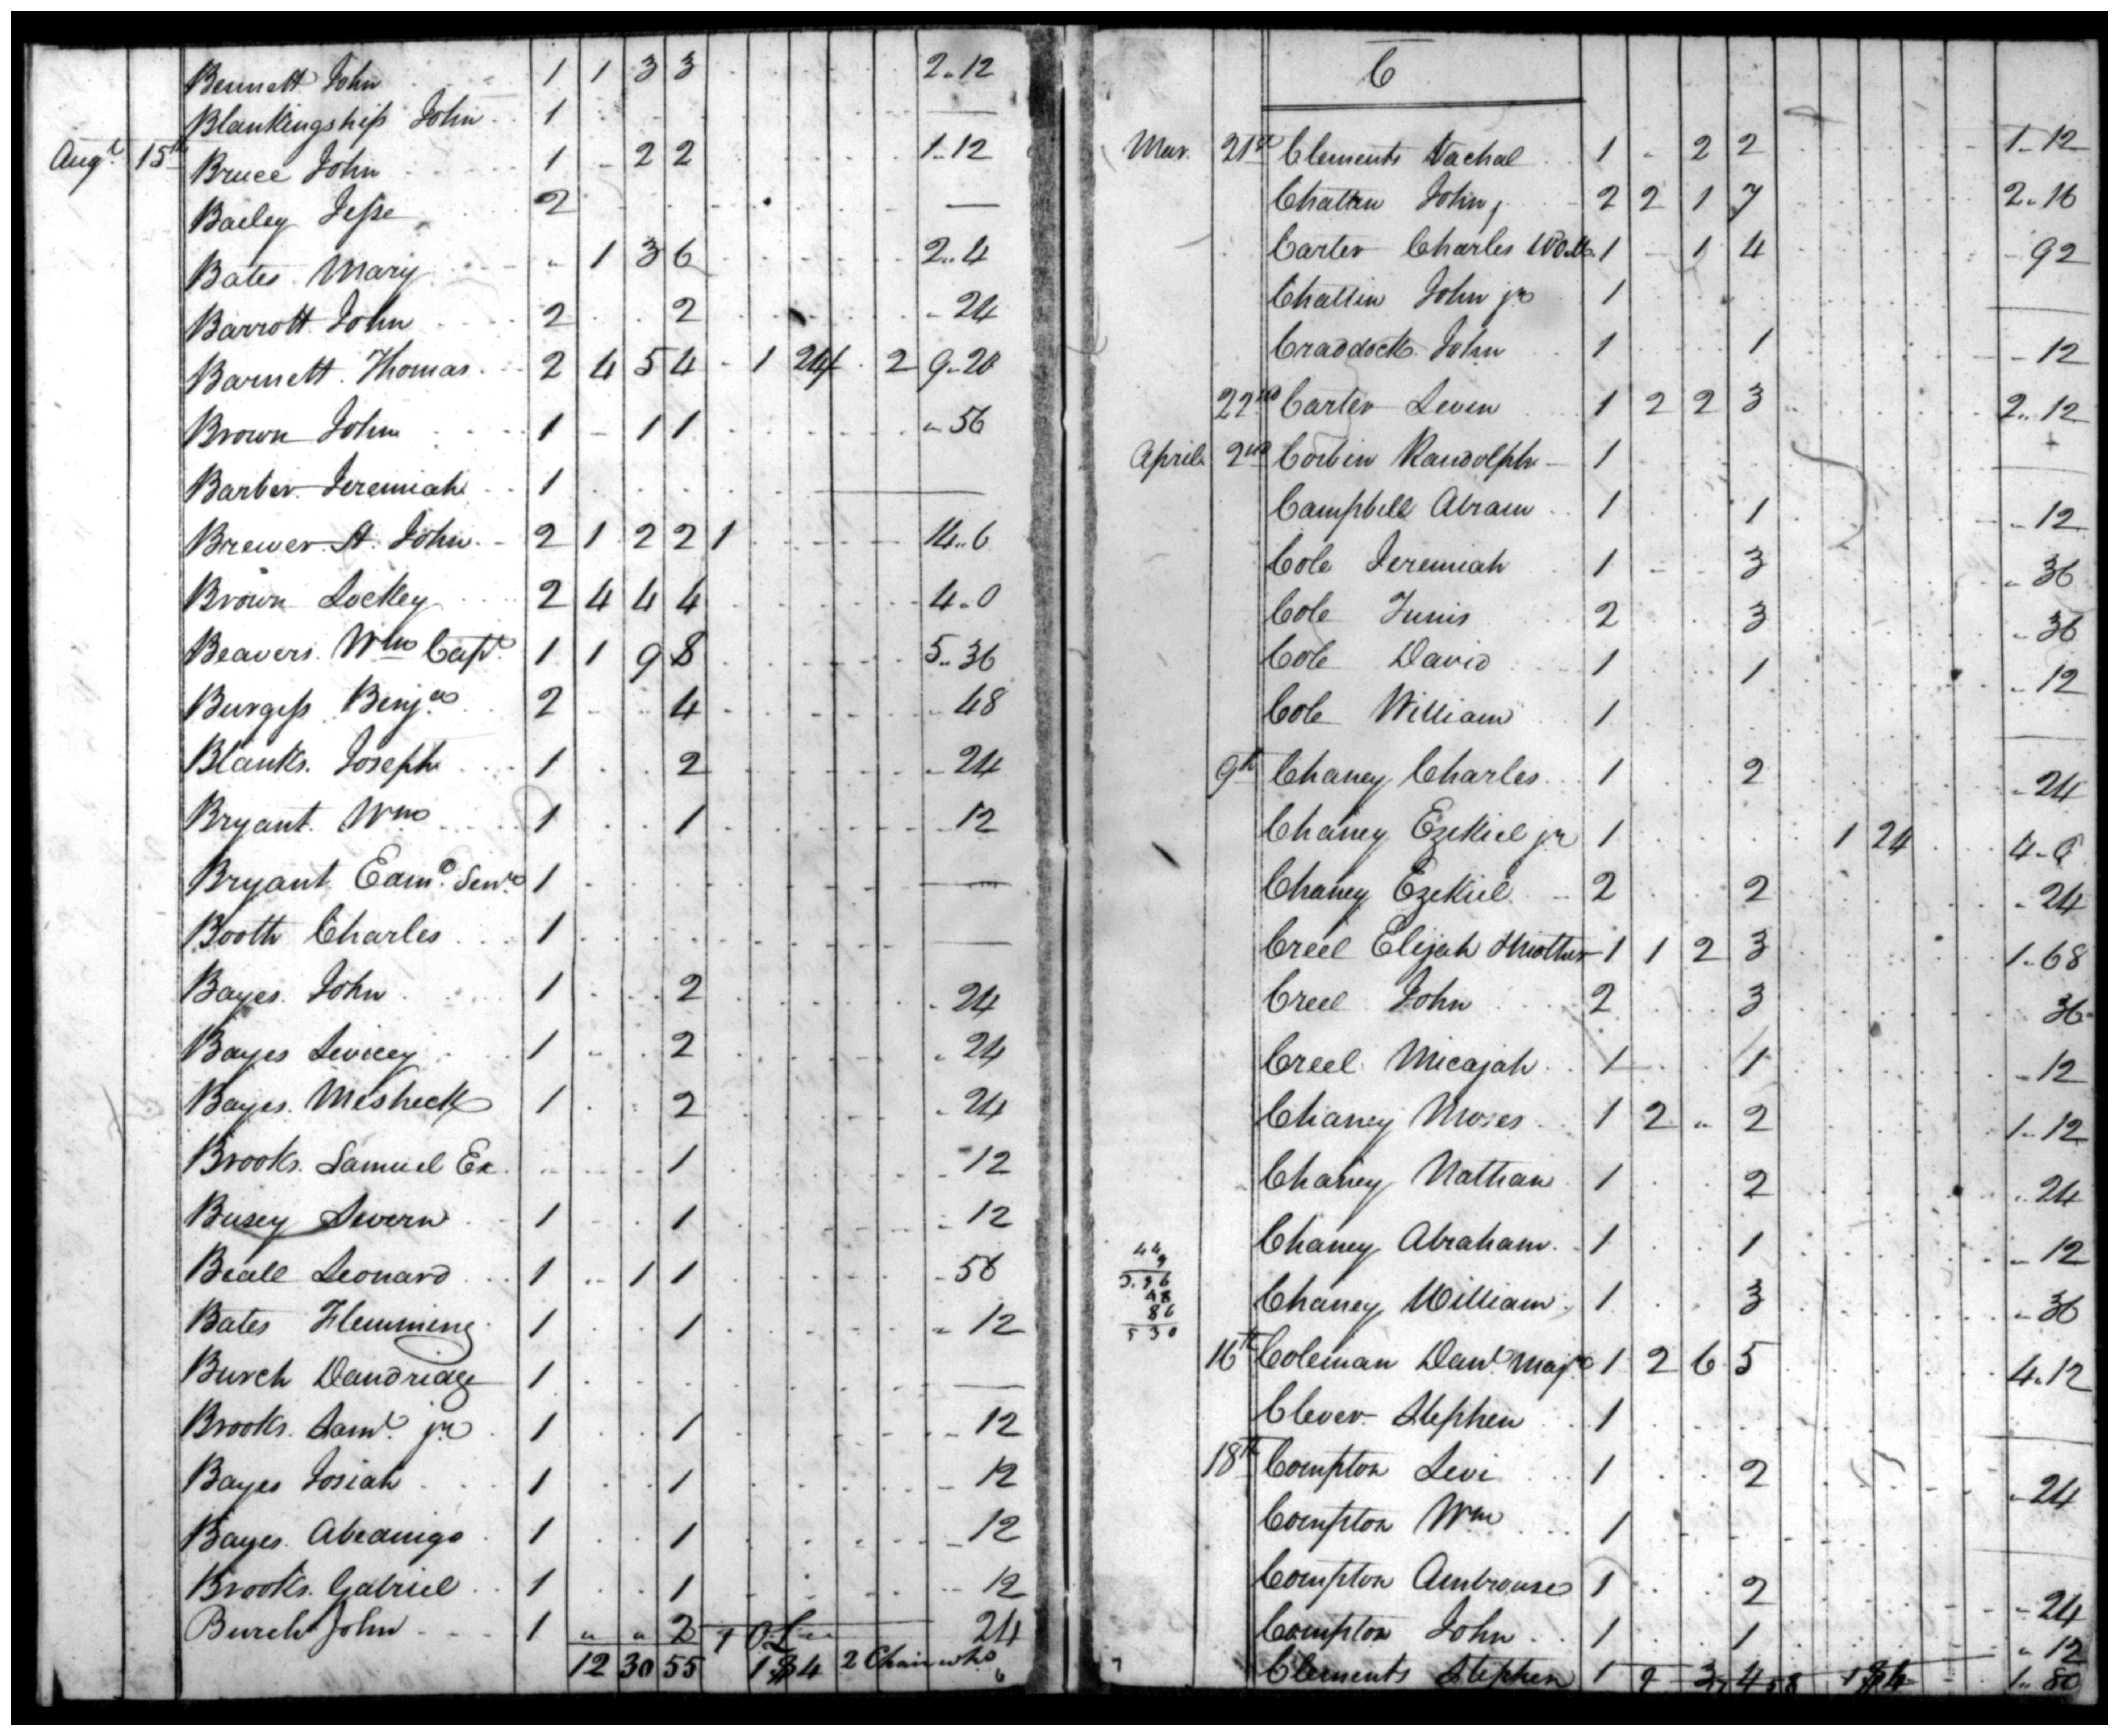 Bennett John 1 1 3 3 2..12
Blankingship John 1 —
Augt. 15th Bruce John 1 - 2 2 1..12
Bailey Jesse 2 —
Bates Mary " 1 3 6 2..4
Barrott John 2 2 " 24
Barnett Thomas 2 4 5 4 - 1 24 2 9..20
Brown John 1 - 1 1 " 56
Barber Jeremiah 1 —
Brewer A. John 2 1 2 2 1 14..6
Brown Lockey 2 4 4 4 4..0
Beavers Wm Capt. 1 1 9 8 5..36
Burgess Benja. 2 4 " 48
Blanks Joseph 1 2 " 24
Bryant Wm 1 1 12
Bryant Edmd. Senr. 1 —
Booth Charles 1 —
Bayes John 1 2 " 24
Bayes 1 2 " 24
Bayes Mesheck 1 2 " 24
Brooks Samuel Ex 1 " 12
Busey Severn 1 1 " 12
Beall Leonard 1 " 1 1 " 56
Bates Flemming 1 1 " 12
Burch Dandridge 1 —
Brooks Saml. jr 1 1 " 12
Bayes Josiah 1 1 12
Bayes Abednigo 1 1 12
Brooks Gabriel 1 1 12
Burch John 1 " " 2 24
12 30 55 2 Chair whs
C
Mar. 21st Clements Vachal 1 " 2 2 1..12
Chattin John 2 2 1 7 2..16
Carter Charles 1 - 1 4 92
Chattin John jr 1 —
Craddock John 1 1 12
22nd Carter Leven 1 2 2 3 2..12
April 2nd Corbin Randolph 1 —
Campbell Abram 1 1 " 12
Cole Jeremiah 1 3 " 36
Cole Junis 2 3 " 36
Cole David 1 1 " 12
Cole William 1 —
9th Chaney Charles 1 2 " 24
Chaney Ezekiel jr 1 1 24 4..
Chaney Ezekiel 2 2 " 24
Creel Elijah & mother 1 1 2 3 1..68
Creel John 2 3 36
Creel Micajah 1 1 " 12
Chaney Moses 1 2 " 2 1..12
Chaney Nathan 1 2 " 24
Chaney Abraham 1 1 " 12
44
9
3.96
48
86
5 30
Chaney William 1 3 " 36
16th Coleman Danl. Majr. 1 2 6 5 4..12
Clever Stephen 1 —
18th Compton Levi 1 2 " 24
Compton Wm 1
Compton Ambrouse 1 2 " 24
Compton John 1 1 " 12
Clements Stephen 1 2 3 4 1..80